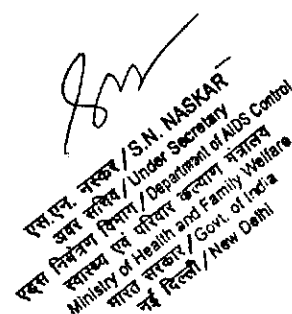 एस.एन. नस्कर / S.N. NASKAR
अवर सचिव / Under Secretary
एड्स नियंत्रण विभाग / Department of AIDS Control
स्वास्थ्य एवं परिवार कल्याण मंत्रालय
Ministry of Health and Family Welfare
भारत सरकार / Govt. of India
नई दिल्ली / New Delhi